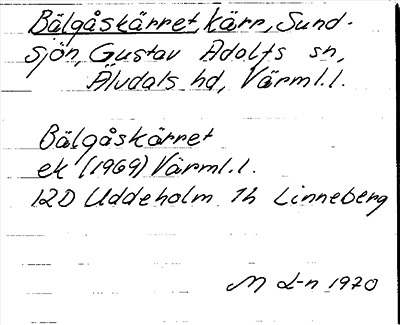 Bälgåskärret, kärr, Sund-
sjön, Gustav Adolfs sn,
Älvdals hd, Värml.l.
Bälgåskärret
ek (1969) Värml.l.
12D Uddeholm 1h Linneberg
M L-n 1970